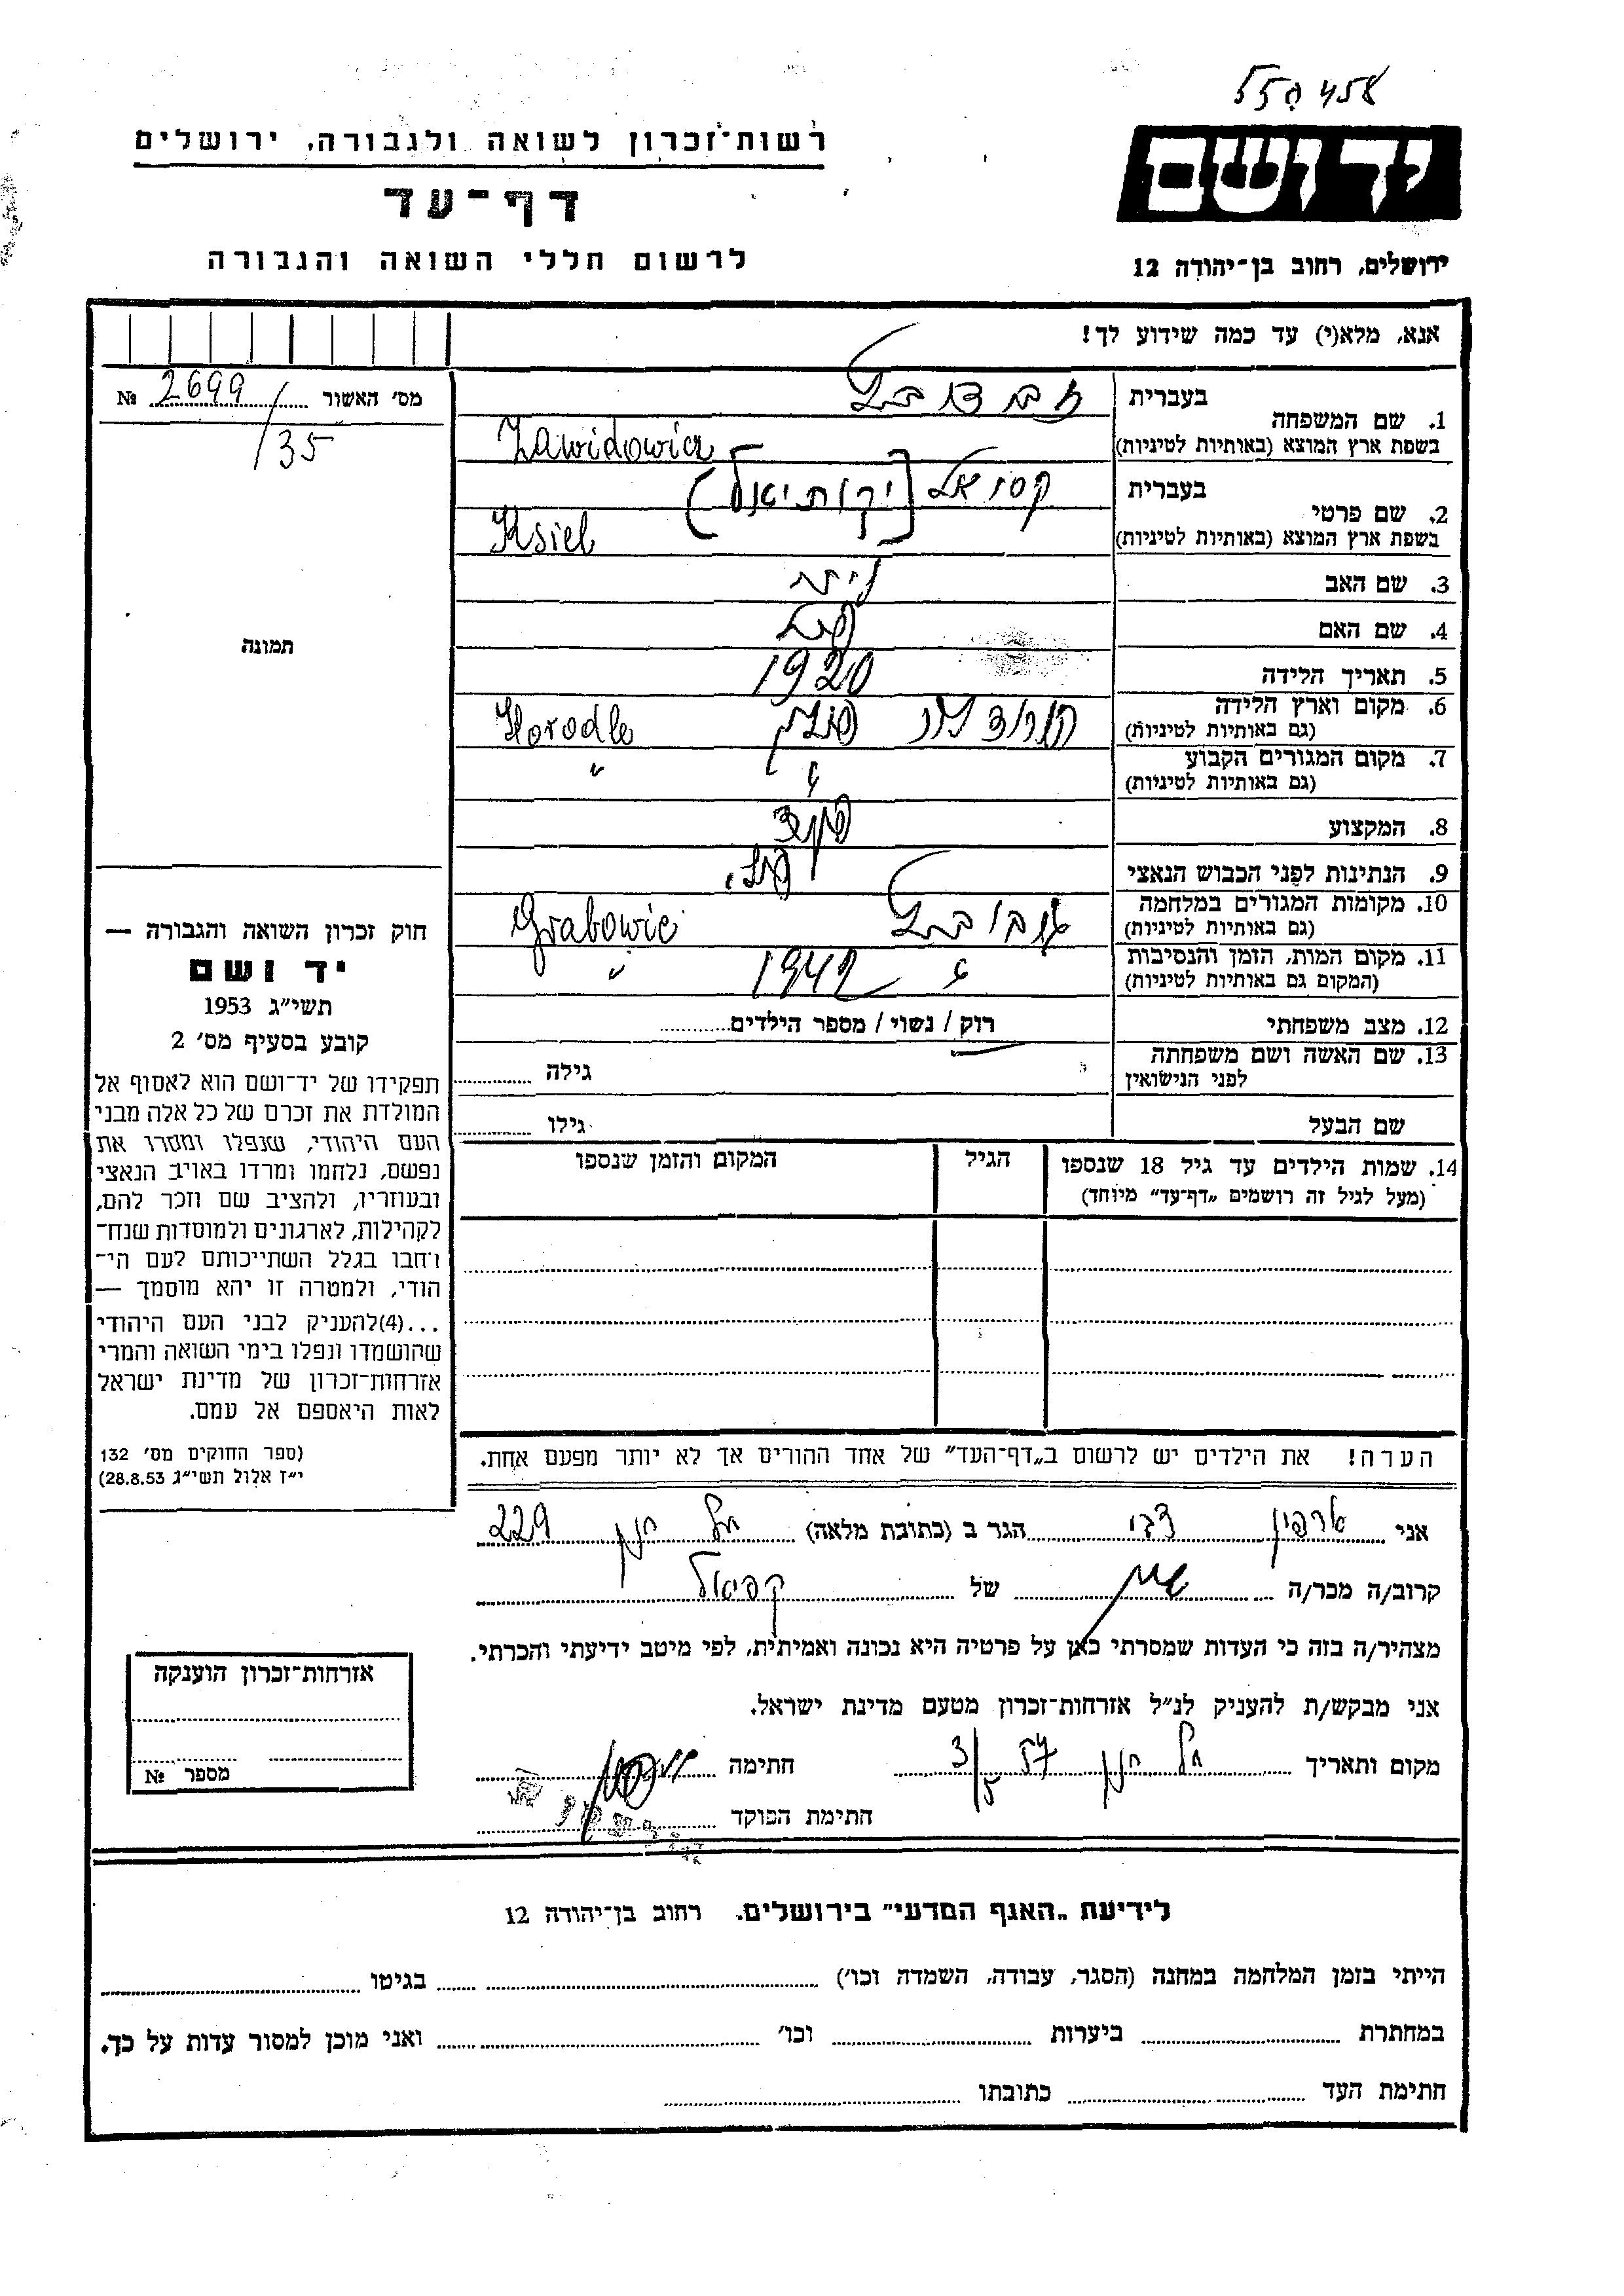 558458
רשות־זכרון לשואה ולגבורה, ירושלים
יד ושם
דף־עד
לרשום חללי השואה והגבורה
ירושלים, רחוב בן־יהודה 12
אנא, מלא(י) עד כמה שידוע לך!
מס׳ האשור № 2699/35
1. שם המשפחה
בעברית
בשפת ארץ המוצא (באותיות לטיניות) Zawidowicz
2. שם פרטי
בעברית קסיאל (יקותיאל)
בשפת ארץ המוצא (באותיות לטיניות) Ksiel
3. שם האב
4. שם האם
5. תאריך הלידה 1920
6. מקום וארץ הלידה פולין Horodle
(גם באותיות לטיניות)
7. מקום המגורים הקבוע " "
(גם באותיות לטיניות)
8. המקצוע
9. הנתינות לפני הכבוש הנאצי פול.
10. מקומות המגורים במלחמה Grabowic
(גם באותיות לטיניות)
11. מקום המות, הזמן והנסיבות " 1942 "
(המקום גם באותיות לטיניות)
12. מצב משפחתי רוק / נשוי / מספר הילדים
13. שם האשה ושם משפחתה גילה
לפני הנישואין
שם הבעל גילו
14. שמות הילדים עד גיל 18 שנספו הגיל המקום והזמן שנספו
(מעל לגיל זה רושמים „דף־עד” מיוחד)
הערה! את הילדים יש לרשום ב„דף־העד” של אחד ההורים אך לא יותר מפעם אחת.
תמונה
חוק זכרון השואה והגבורה —
יד ושם
תשי״ג 1953
קובע בסעיף מס׳ 2
תפקידו של יד־ושם הוא לאסוף אל
המולדת את זכרם של כל אלה מבני
העם היהודי, שנפלו ומסרו את
נפשם, נלחמו ומרדו באויב הנאצי
ובעוזריו, ולהציב שם וזכר להם,
לקהילות, לארגונים ולמוסדות שנח־
רחבו בגלל השתייכותם לעם הי־
הודי, ולמטרה זו יהא מוסמך —
...(4)להעניק לבני העם היהודי
שהושמדו ונפלו בימי השואה והמרי
אזרחות־זכרון של מדינת ישראל
לאות היאספם אל עמם.
(ספר החוקים מס׳ 132
י״ז אלול תשי״ג 28.8.53)
אני צבי הגר ב (כתובת מלאה) תל חנן 229
קרוב/ה מכר/ה של קסיאל
מצהיר/ה בזה כי העדות שמסרתי כאן על פרטיה היא נכונה ואמיתית, לפי מיטב ידיעתי והכרתי.
אני מבקש/ת להעניק לנ״ל אזרחות־זכרון מטעם מדינת ישראל.
מקום ותאריך תל חנן 3/5 57 חתימה
חתימת הפוקד
אזרחות־זכרון הוענקה
מספר №
לידיעת „האגף המדעי” בירושלים. רחוב בן־יהודה 12
הייתי בזמן המלחמה במחנה (הסגר, עבודה, השמדה וכו׳) בגיטו
במחתרת ביערות וכו׳ ואני מוכן למסור עדות על כך.
חתימת העד כתובתו